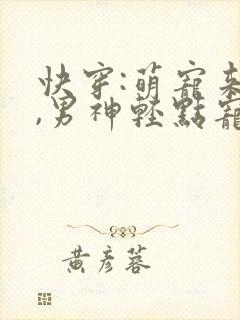 快穿:萌寵來
,男神輕點寵
黃彥蓉